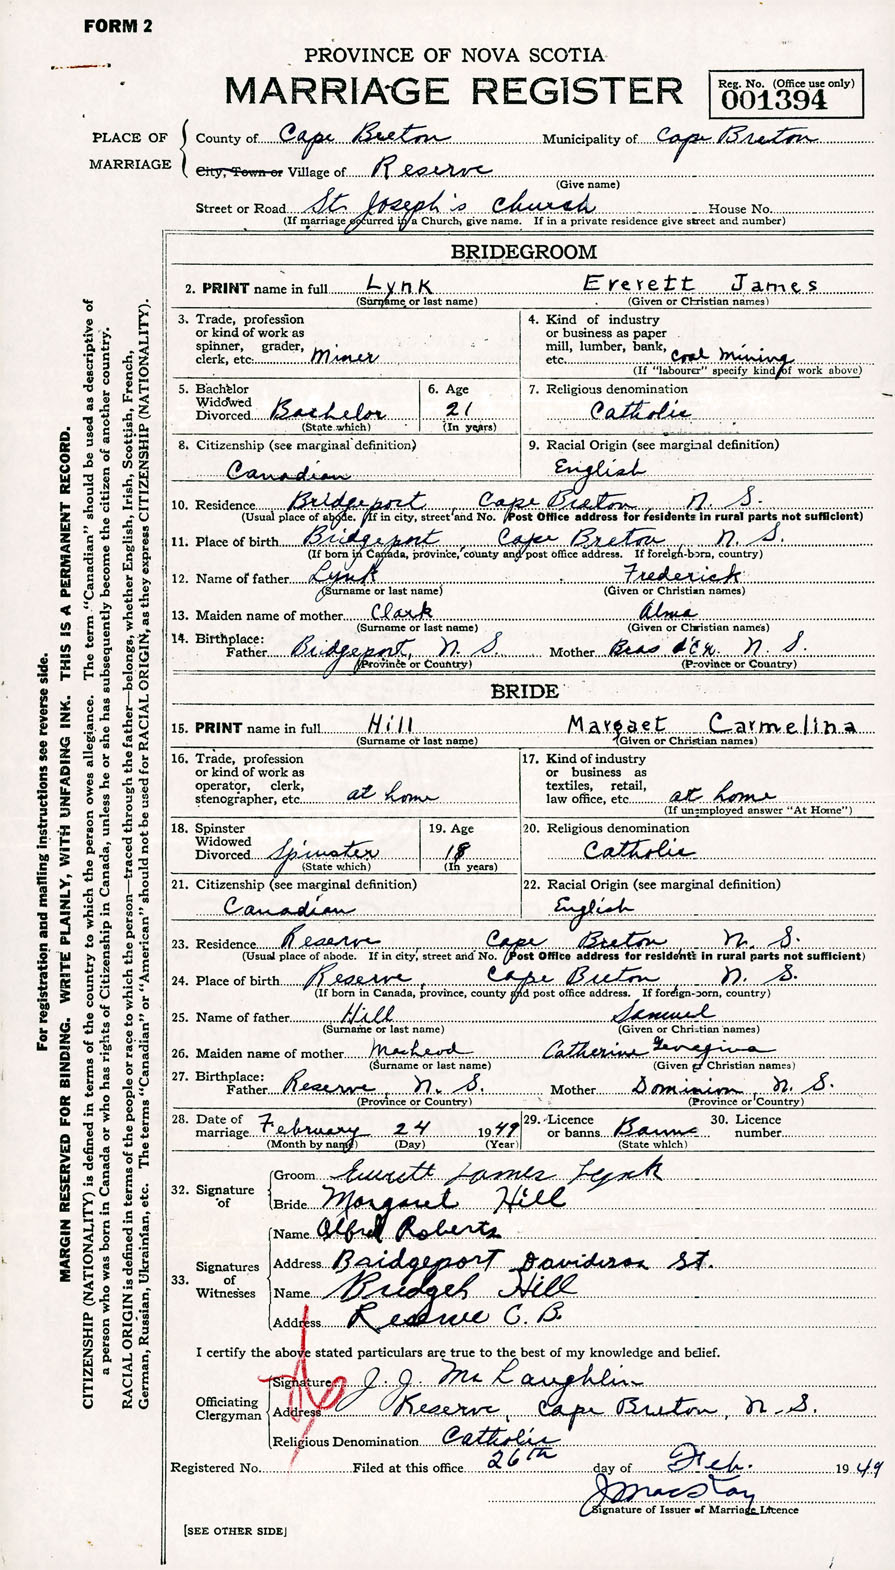 FORM 2
PROVINCE OF NOVA SCOTIA
MARRIAGE REGISTER
Reg. No. (Office use only)
001394
PLACE OF MARRIAGE
County of Cape Breton Municipality of Cape Breton
City, Town or Village of Reserve
(Give name)
Street or Road St. Joseph's Church House No.
(If marriage occurred in a Church, give name. If in a private residence give street and number)
BRIDEGROOM
2. PRINT name in full Lynk Everett James
(Surname or last name) (Given or Christian names)
3. Trade, profession
or kind of work as
spinner, grader,
clerk, etc. Miner
4. Kind of industry
or business as paper
mill, lumber, bank,
etc. Coal Mining
(If "labourer" specify kind of work above)
5. Bachelor
Widowed
Divorced Bachelor
(State which)
6. Age
21
(In years)
7. Religious denomination
Catholic
8. Citizenship (see marginal definition)
Canadian
9. Racial Origin (see marginal definition)
English
10. Residence Bridgeport, Cape Breton, N. S.
(Usual place of abode. If in city, street and No. Post Office address for residents in rural parts not sufficient)
11. Place of birth Bridgeport Cape Breton N. S.
(If born in Canada, province, county and post office address. If foreign-born, country)
12. Name of father Lynk Frederick
(Surname or last name) (Given or Christian names)
13. Maiden name of mother Clark Alma
(Surname or last name) (Given or Christian names)
14. Birthplace:
Father Bridgeport, N. S. Mother Bras d'Or N. S.
(Province or Country) (Province or Country)
BRIDE
15. PRINT name in full Hill Margaet Carmelina
(Surname or last name) (Given or Christian names)
16. Trade, profession
or kind of work as
operator, clerk,
stenographer, etc. at home
17. Kind of industry
or business as
textiles, retail,
law office, etc. at home
(If unemployed answer "At Home")
18. Spinster
Widowed
Divorced Spinster
(State which)
19. Age
18
(In years)
20. Religious denomination
Catholic
21. Citizenship (see marginal definition)
Canadian
22. Racial Origin (see marginal definition)
English
23. Residence Reserve Cape Breton N. S.
(Usual place of abode. If in city, street and No. Post Office address for residents in rural parts not sufficient)
24. Place of birth Reserve, Cape Breton N. S.
(If born in Canada, province, county and post office address. If foreign-born, country)
25. Name of father Hill Samuel
(Surname or last name) (Given or Christian names)
26. Maiden name of mother MacLeod Catherine
(Surname or last name) (Given or Christian names)
27. Birthplace:
Father Reserve, N. S. Mother Dominion, N. S.
(Province or Country) (Province or Country)
28. Date of
marriage February 24 1949
(Month by name) (Day) (Year)
29. Licence
or banns Banns
(State which)
30. Licence
number
32. Signature of
Groom Everett James Lynk
Bride Margaret Hill
33. Signatures of Witnesses
Name Alfred Roberts
Address Bridgeport Davidson St.
Name Bridget Hill
Address Reserve C. B.
I certify the above stated particulars are true to the best of my knowledge and belief.
Officiating Clergyman
Signature J. J. McLaughlin
Address Reserve, Cape Breton, N. S.
Religious Denomination Catholic
Registered No. Filed at this office 26th day of Feb. 1949
J MacKay
Signature of Issuer of Marriage Licence
[SEE OTHER SIDE]
For registration and mailing instructions see reverse side.
MARGIN RESERVED FOR BINDING. WRITE PLAINLY, WITH UNFADING INK. THIS IS A PERMANENT RECORD.
CITIZENSHIP (NATIONALITY) is defined in terms of the country to which the person owes allegiance. The term "Canadian" should be used as descriptive of
a person who was born in Canada or who has rights of Citizenship in Canada, unless he or she has subsequently become the citizen of another country.
RACIAL ORIGIN is defined in terms of the people or race to which the person—traced through the father—belongs, whether English, Irish, Scottish, French,
German, Russian, Ukrainian, etc. The terms "Canadian" or "American" should not be used for RACIAL ORIGIN, as they express CITIZENSHIP (NATIONALITY).